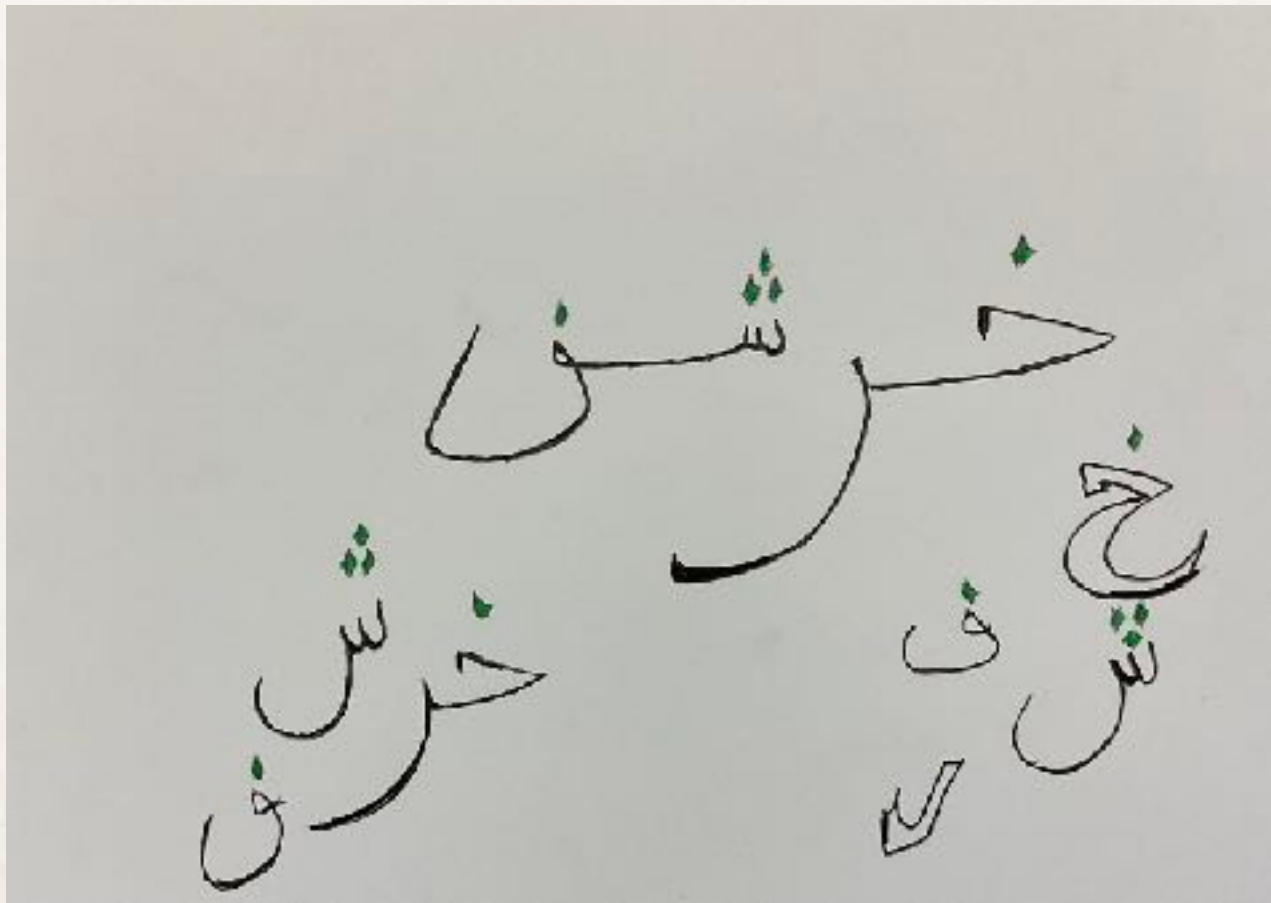 خرشف
خ
ش ف
خر ش
ف